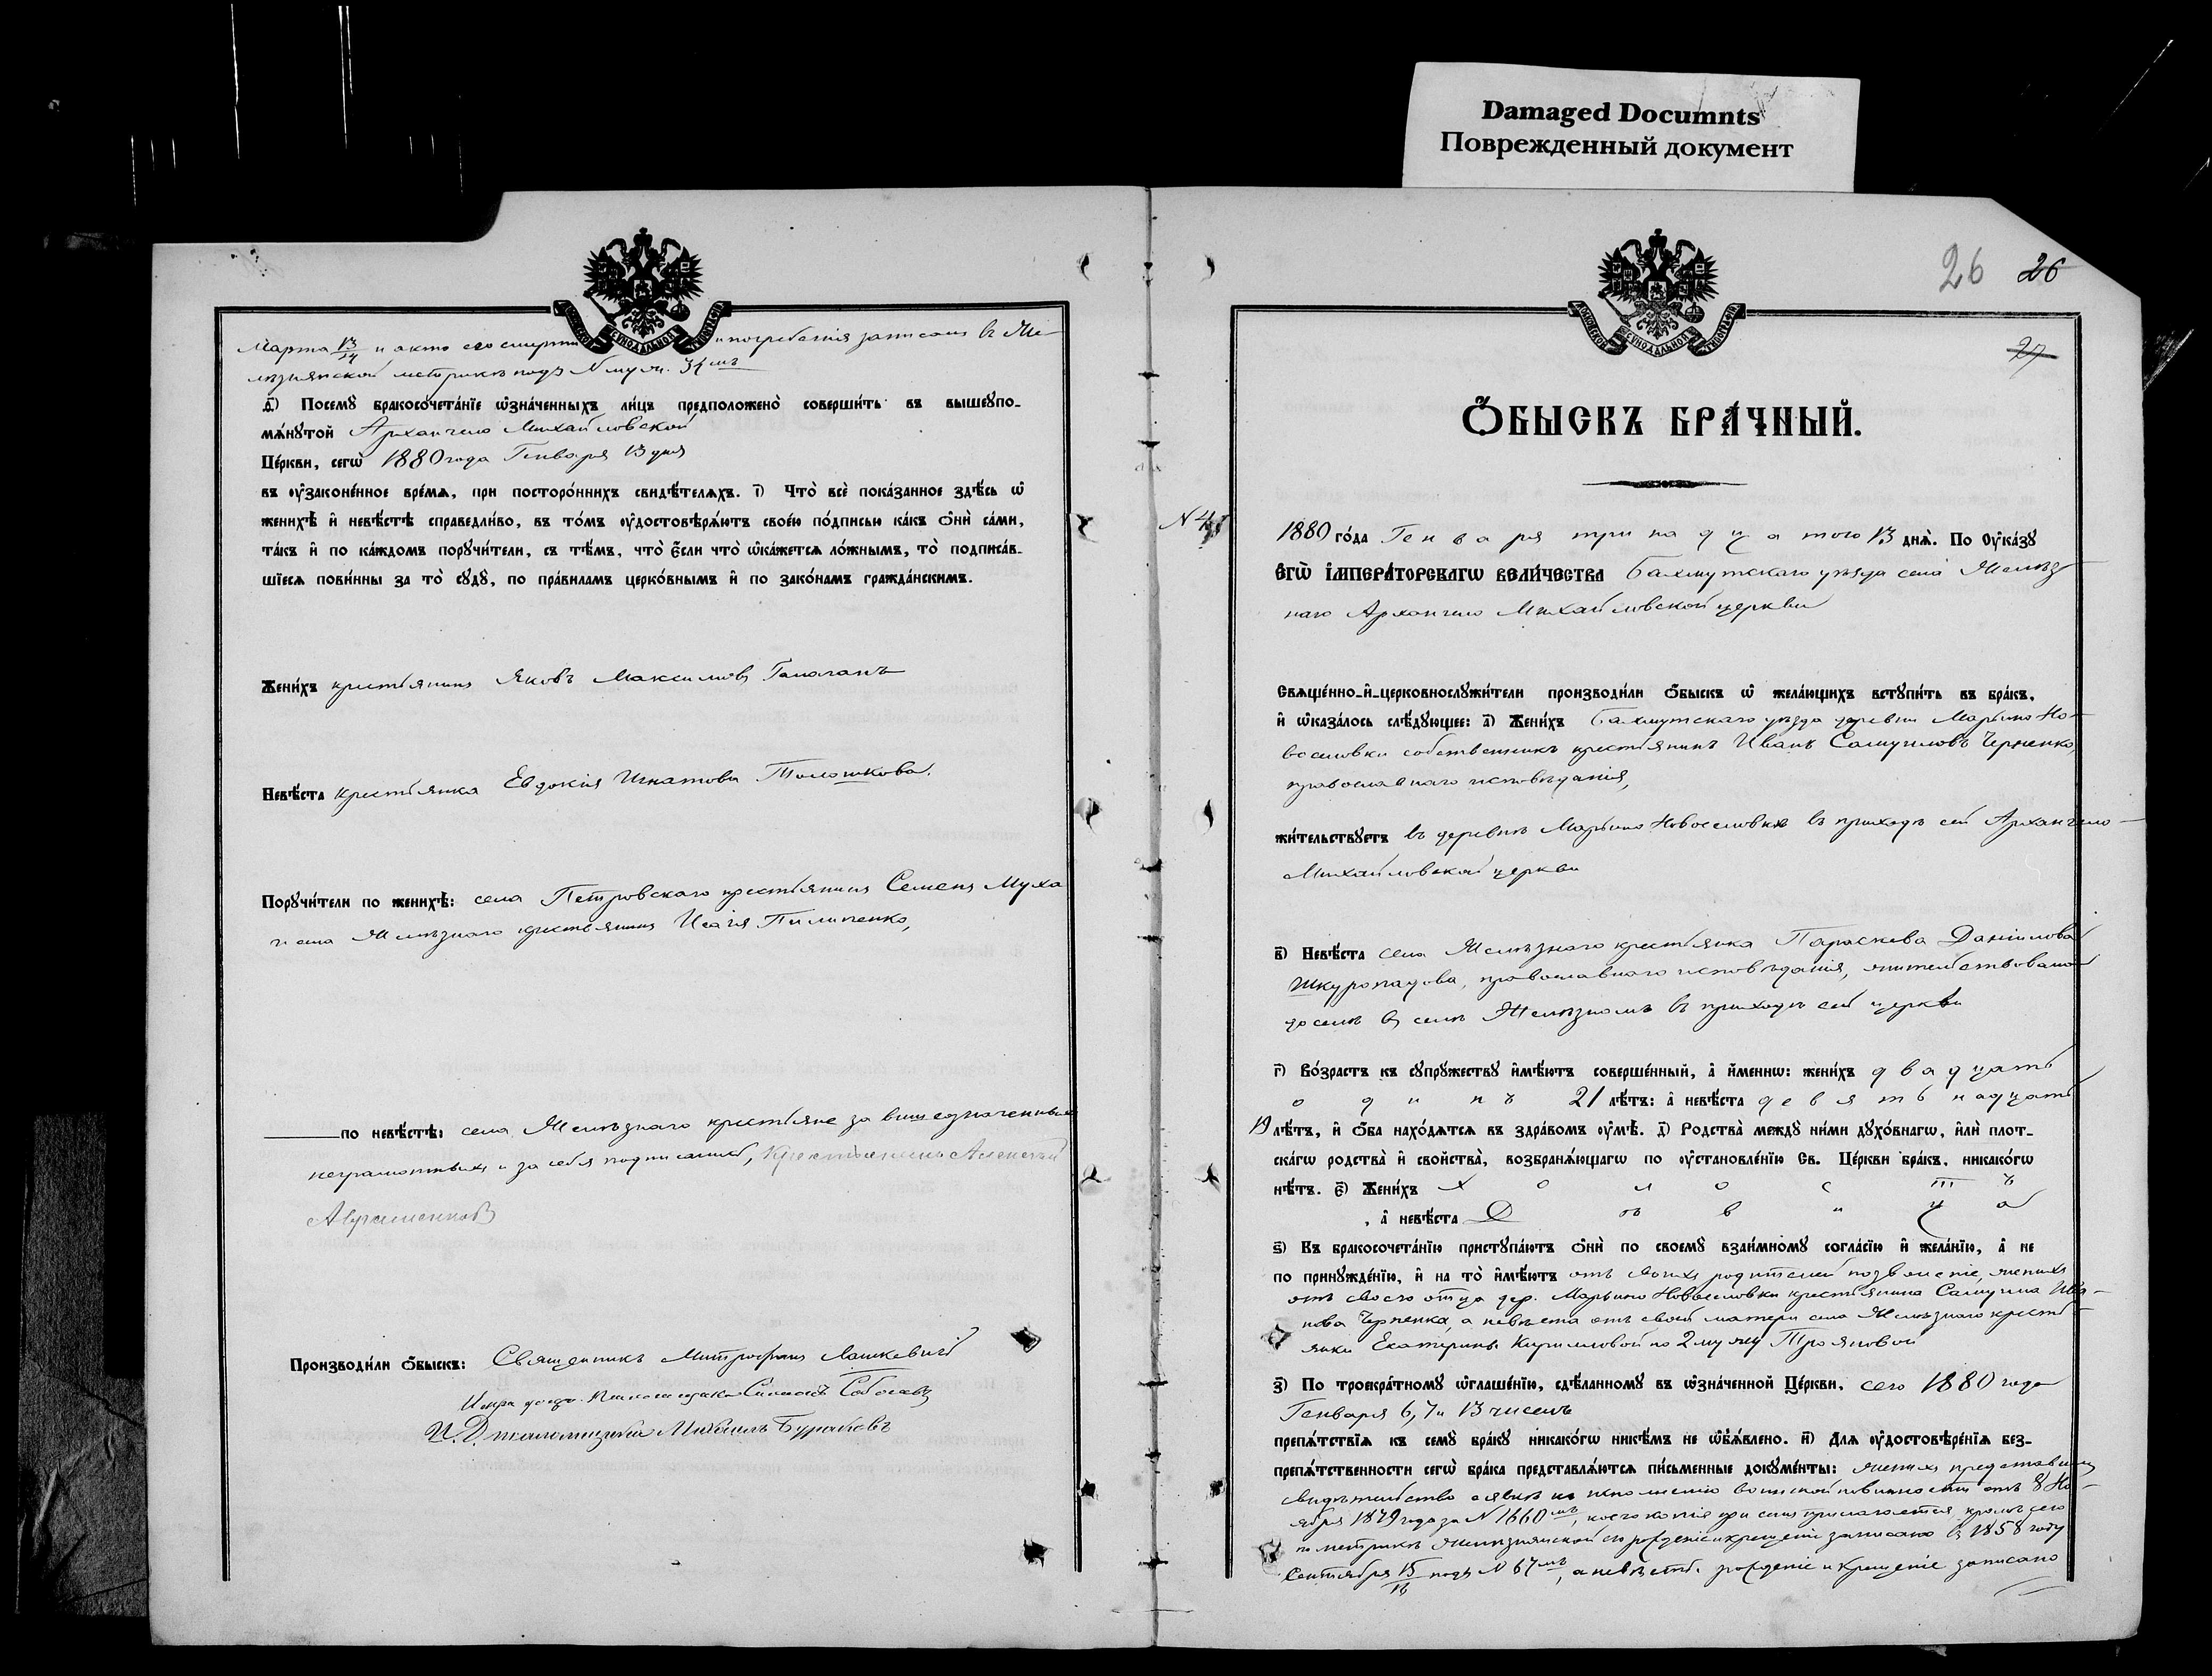 Damaged Documnts
Поврежденный документ
Марта 13/14 и актъ его смерти и погребенія записанъ въ Же-
лезнянской метрикѣ подъ №муж. 34мъ
д҃) Посемꙋ бракосочета́нїе ѡ҆зна́ченныхъ ли́цъ предположено̀ соверши́ть въ вышеꙋпо-
мѧ́нꙋтой Архангело Михайловской
Це́ркви, сегѡ̀ 1880 года Генваря 13 дня
въ ᲂу҆законе́нное вре́мѧ, при посторо́ннихъ свидѣ́телѧхъ. і҃) Что̀ всѐ пока́занное здѣ́сь ѡ҆
женихѣ̀ и҆ невѣ́стѣ справедли́во, въ то́мъ ᲂу҆достовѣрѧ́ютъ свое́ю по́дписью ка́къ ѻ҆нѝ са́ми,
та́къ и҆ по ка́ждомъ порꙋчи́тели, съ тѣ́мъ, что̀ є҆́сли что̀ ѡ҆ка́жетсѧ ло́жнымъ, то̀ подписа́в-
шїесѧ пови́нны за то̀ сꙋдꙋ̀, по пра́виламъ церко́внымъ и҆ по зако́намъ гражда́нскимъ.
Жени́хъ крестьянинъ Яковъ Максимовъ
Невѣ́ста крестьянка Евдокія Игнатова Толошкова.
Порꙋчи́тели по женихѣ̀: села Петровскаго крестьянинъ Семенъ Муха
и села Желѣзнаго крестьянинъ Исаія Пилипенко,
по невѣ́стѣ: села Желѣзнаго крестьяне за вышеозначенныхъ
неграмотныхъ и за себя подписалъ, Крестьянинъ Алексей
Авраменковъ
Производи́ли ѻ҆́быскъ: Священникъ Митрофанъ Лашкевичъ
Соболевъ
И. Д. псаломщика Михаилъ Бураковъ
26 26
27
Ѻ҆́БЫСКЪ БРА́ЧНЫЙ.
N 4й
1880 го́да Генваря тринадцатого 13 днѧ̀. По ᲂу҆ка́зꙋ
Є҆гѡ̀ І҆мпера́торскагѡ Вели́чества Бахмутскаго уѣзда села Желѣз-
наго Архангело Михайловской церкви
Свѧще́нно-и҆-церковнослꙋжи́тели производи́ли ѻ҆́быскъ ѡ҆ жела́ющихъ встꙋпи́ть въ бра́къ,
и҆ ѡ҆каза́лось слѣ́дꙋющее: а҃) Жени́хъ Бахмутскаго уѣзда деревни Марьино Но-
воселовки собственникъ крестьянинъ Иванъ Самуиловъ Черненко,
православнаго исповѣданія,
жи́тельствꙋетъ въ деревнѣ Марьино Новоселовкѣ въ приходѣ сей Архангело-
Михайловской церкви
в҃) Невѣ́ста села Желѣзнаго крестьянка Параскева Даніилова
Шкуропадова, православнаго исповѣданія, жительствовала
доселѣ въ селѣ Желѣзномъ въ приходѣ сей церкви
г҃) Во́зрастъ къ сꙋпрꙋ́жествꙋ и҆мѣ́ютъ соверше́нный, а҆ и҆́меннѡ: жени́хъ двадцать
одинъ 21 лѣ́тъ: а҆ невѣ́ста девятьнадцать
19 лѣ́тъ, и҆ ѻ҆́ба нахо́дѧтсѧ въ здра́вомъ ᲂу҆мѣ̀. д҃) Родства̀ междꙋ ни́ми дꙋхо́внагѡ, и҆лѝ плот-
ска́гѡ родства̀ и҆ свойства̀, возбранѧ́ющагѡ по ᲂу҆становле́нїю Св. Це́ркви бра́къ, никако́гѡ
нѣ́тъ. є҃) Жени́хъ Холостъ
, а҆ невѣ́ста Дѣвица
ѕ҃) Къ бракосочета́нїю пристꙋпа́ютъ ѻ҆нѝ по своемꙋ̀ взаи́мномꙋ согла́сїю и҆ жела́нїю, а҆ не
по принꙋжде́нїю, и҆ на то̀ и҆мѣ́ютъ отъ своихъ родителей позволеніе, женихъ
отъ своего отца дер. Марьино Новоселовки крестьянина Самуила Ива-
нова Черненка, а невѣста отъ своей матери села Желѣзнаго кресть-
янки Екатерины Кирилловой по 2му мужу Трояновой
з҃) По троекра́тномꙋ ѡ҆глаше́нїю, сдѣ́ланномꙋ въ ѡ҆зна́ченной Це́ркви, сего 1880 года
Генваря 6, 7 и 13 чиселъ
препѧ́тствїѧ къ семꙋ̀ бра́кꙋ никако́гѡ никѣ́мъ не ѡ҆б̾ѧ́влено. и҃) Длѧ ᲂу҆достовѣре́нїѧ без-
препѧ́тственности сегѡ̀ бра́ка представлѧ́ютсѧ пи́сьменные докꙋме́нты: женихъ представилъ
свидѣтельство о явкѣ къ исполненію воинской повинности отъ 8 Но-
ября 1879 года за N 1660мъ, коего копія при семъ прилагается, кромѣ сего
по метрикѣ Желѣзнянской его рожденіе и крещеніе записано въ 1858 году
Сентября 15/16 подъ N 67мъ, а невѣсты рожденіе и крещеніе записано